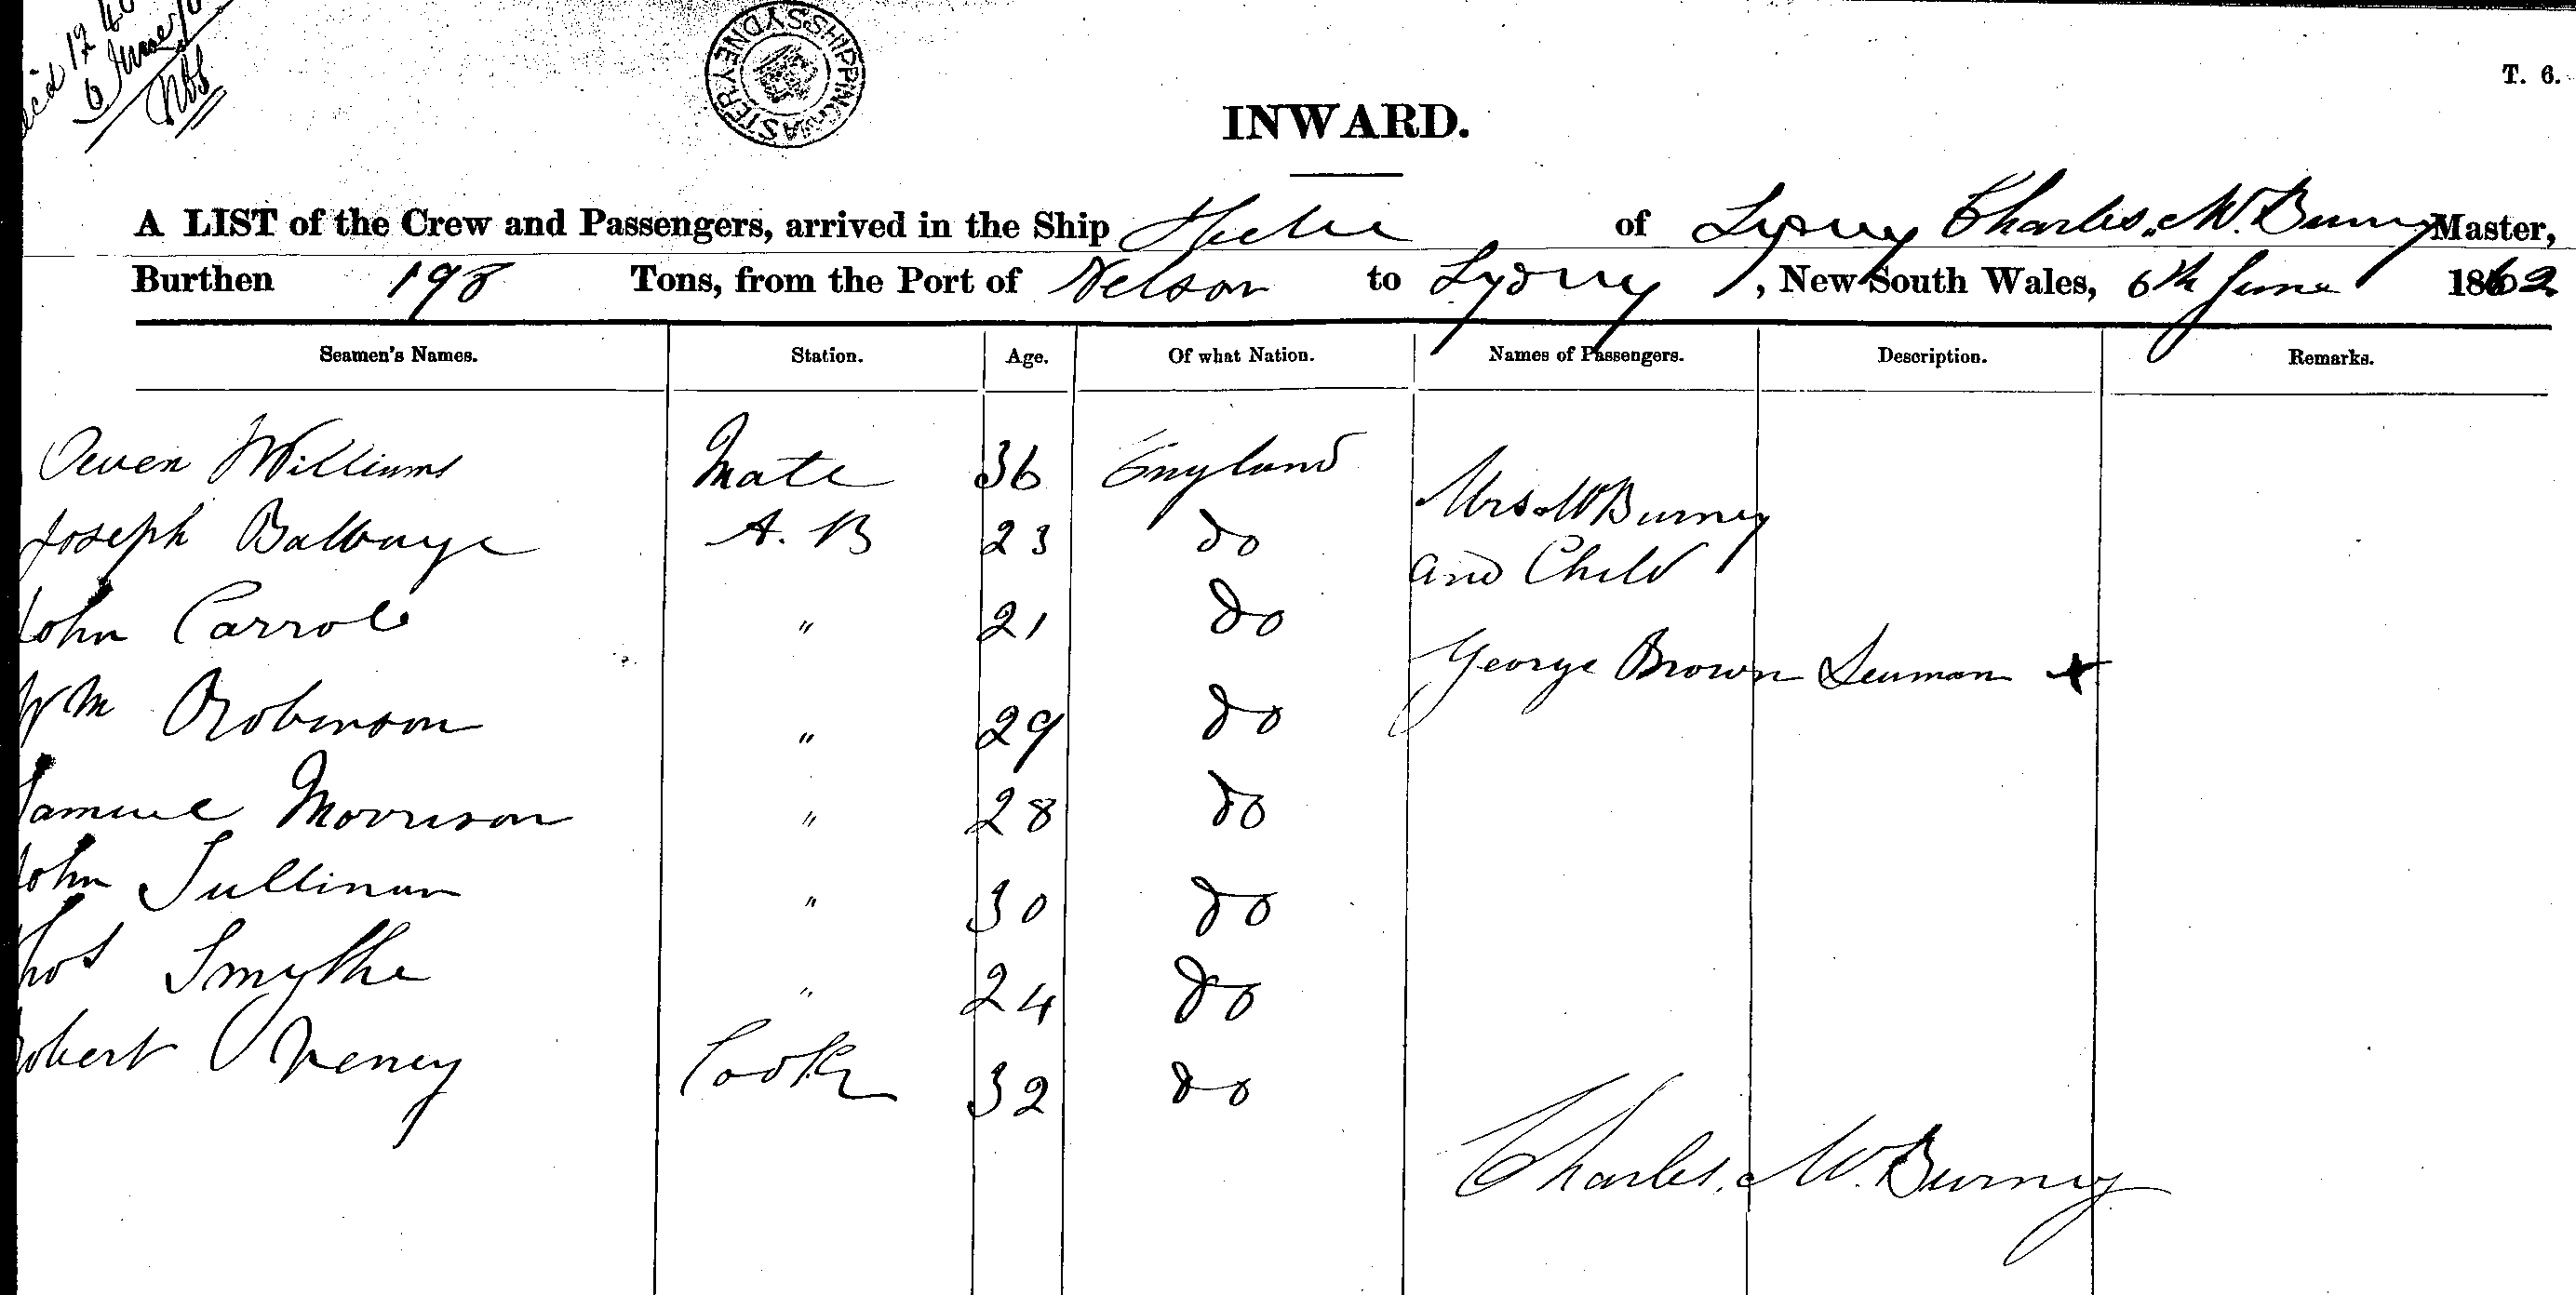 6 June
SHIPPING MASTER SYDNEY
T. 6.
INWARD.
A LIST of the Crew and Passengers, arrived in the Ship Hebe of Sydney Charles McBurney Master,
Burthen 198 Tons, from the Port of Nelson to Sydney, New South Wales, 6th June 1862
Seamen's Names. Station. Age. Of what Nation. Names of Passengers. Description. Remarks.
Owen Williams Mate 36 England Mrs McBurney
Joseph A. B 23 do and Child
John Carrol " 21 do
George Brown Seaman x
Wm Robinson " 29 do
Samuel Morrison " 28 do
John Sullivan " 30 do
Thos Smythe " 24 do
Robert Cook 32 do
Charles McBurney